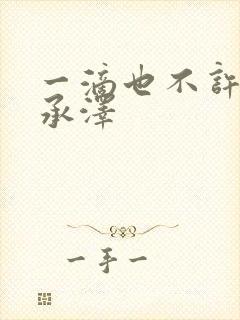 一滴也不許
承澤
一手一